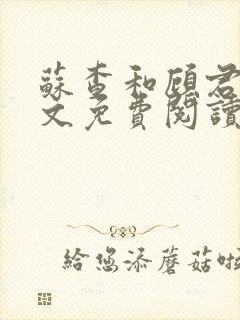 蘇杳和顧君
文免費閱讀
給您添蘑菇啦